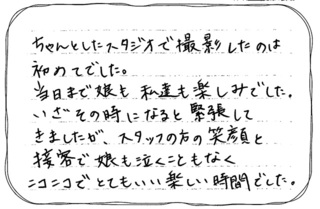 ちゃんとしたスタジオで撮影したのは
初めてでした。
当日まで娘も私達も楽しみでした。
いざその時になると緊張して
きましたが、スタッフの方の笑顔と
接客で娘も泣くこともなく
ニコニコでとてもいい楽しい時間でした。